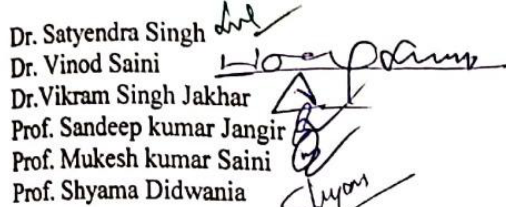 Dr. Satyendra Singh
Dr. Vinod Saini
Dr.Vikram Singh Jakhar
Prof. Sandeep kumar Jangir
Prof. Mukesh kumar Saini
Prof. Shyama Didwania